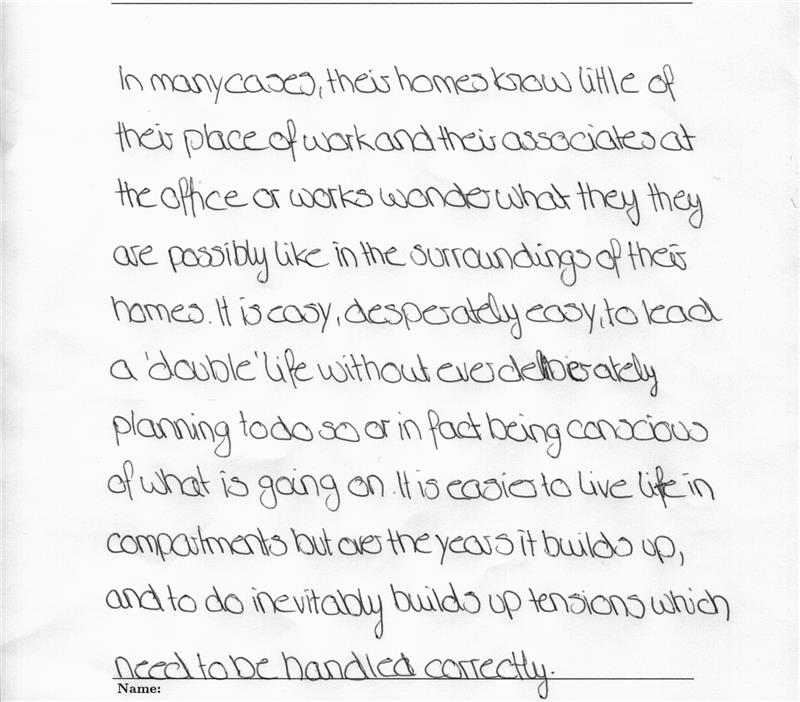 In many cases, their homes know little of
their place of work and their associates at
the office or works wonder what they they
are possibly like in the surroundings of their
homes. It is easy, desperately easy, to lead
a 'double' life without ever deliberately
planning to do so or in fact being conscious
of what is going on. It is easier to live life in
compartments but over the years it builds up,
and to do inevitably builds up tensions which
need to be handled correctly.
Name: